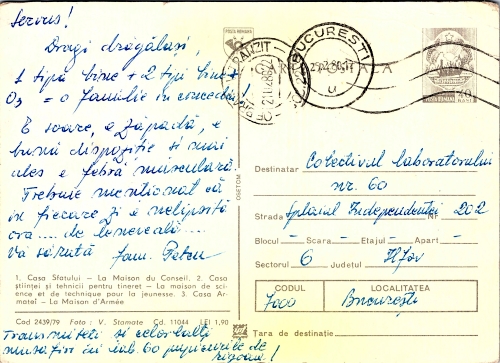 Servus!
Dragi drăgălași,
1 tipă bine + 2 tipi bine +
O₃ = o familie în concediu!
E soare, e zăpadă, e
bună dispoziție și mai
ales e febră musculară.
Trebuie menționat că
în fiecare zi e nelipsită
ora.... de leneveală....
Vă sărută fam. Petcu
1. Casa Sfatului — La Maison du Conseil. 2. Casa
științei și tehnicii pentru tineret — La maison de sci-
ence et de technique pour la jeunesse. 3. Casa Ar-
matei — La Maison d'Armée
Cod 2439/79 Foto : V. Stamate Cd. 11044 LEI 1,90
Transmiteți și celorlalți
musafiri în lab. 60 pupicurile de
rigoare!
OSETOM
POSTA ROMANA
TRANZIT
BUCUREȘTI
CARTA POSTALA
POSTA ROMANA
Destinatar Colectivul laboratorului
nr. 60
Strada Splaiul Independenței Nr. 202
Blocul — Scara — Etajul — Apart —
Sectorul 6 Județul Ilfov
CODUL LOCALITATEA
7000 București
Tara de destinație